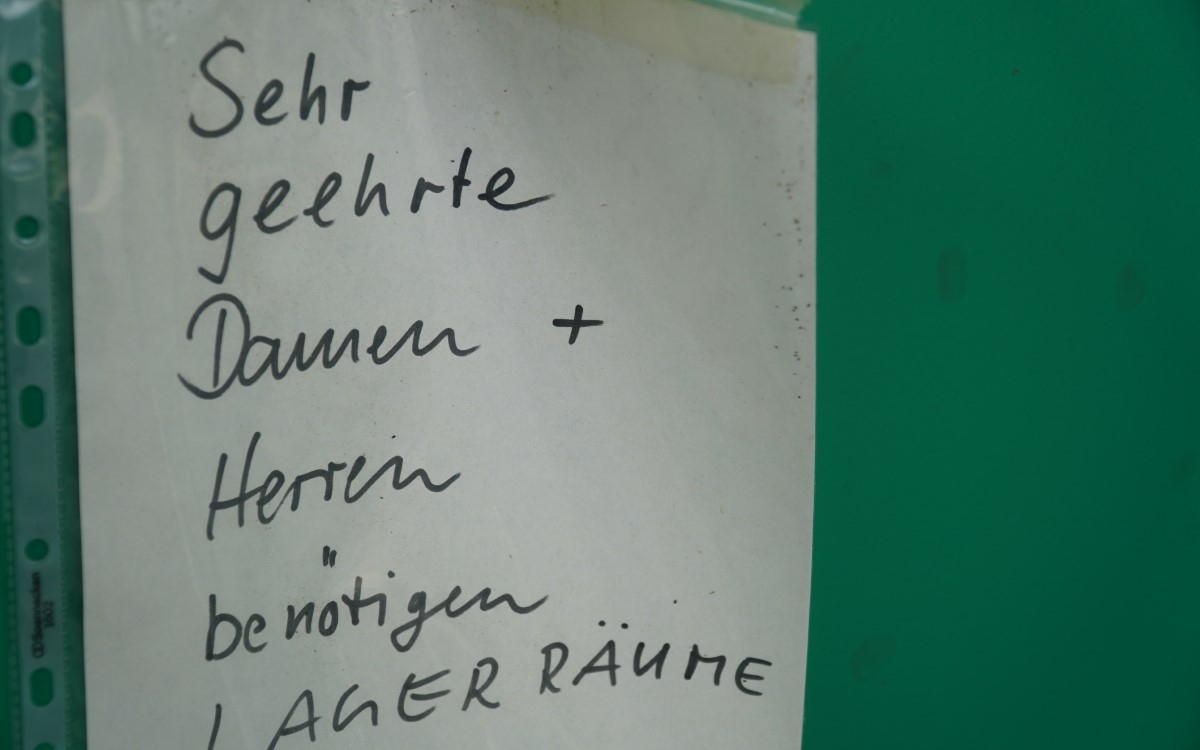 Sehr
geehrte
Damen +
Herren
benötigen
LAGER RÄUME